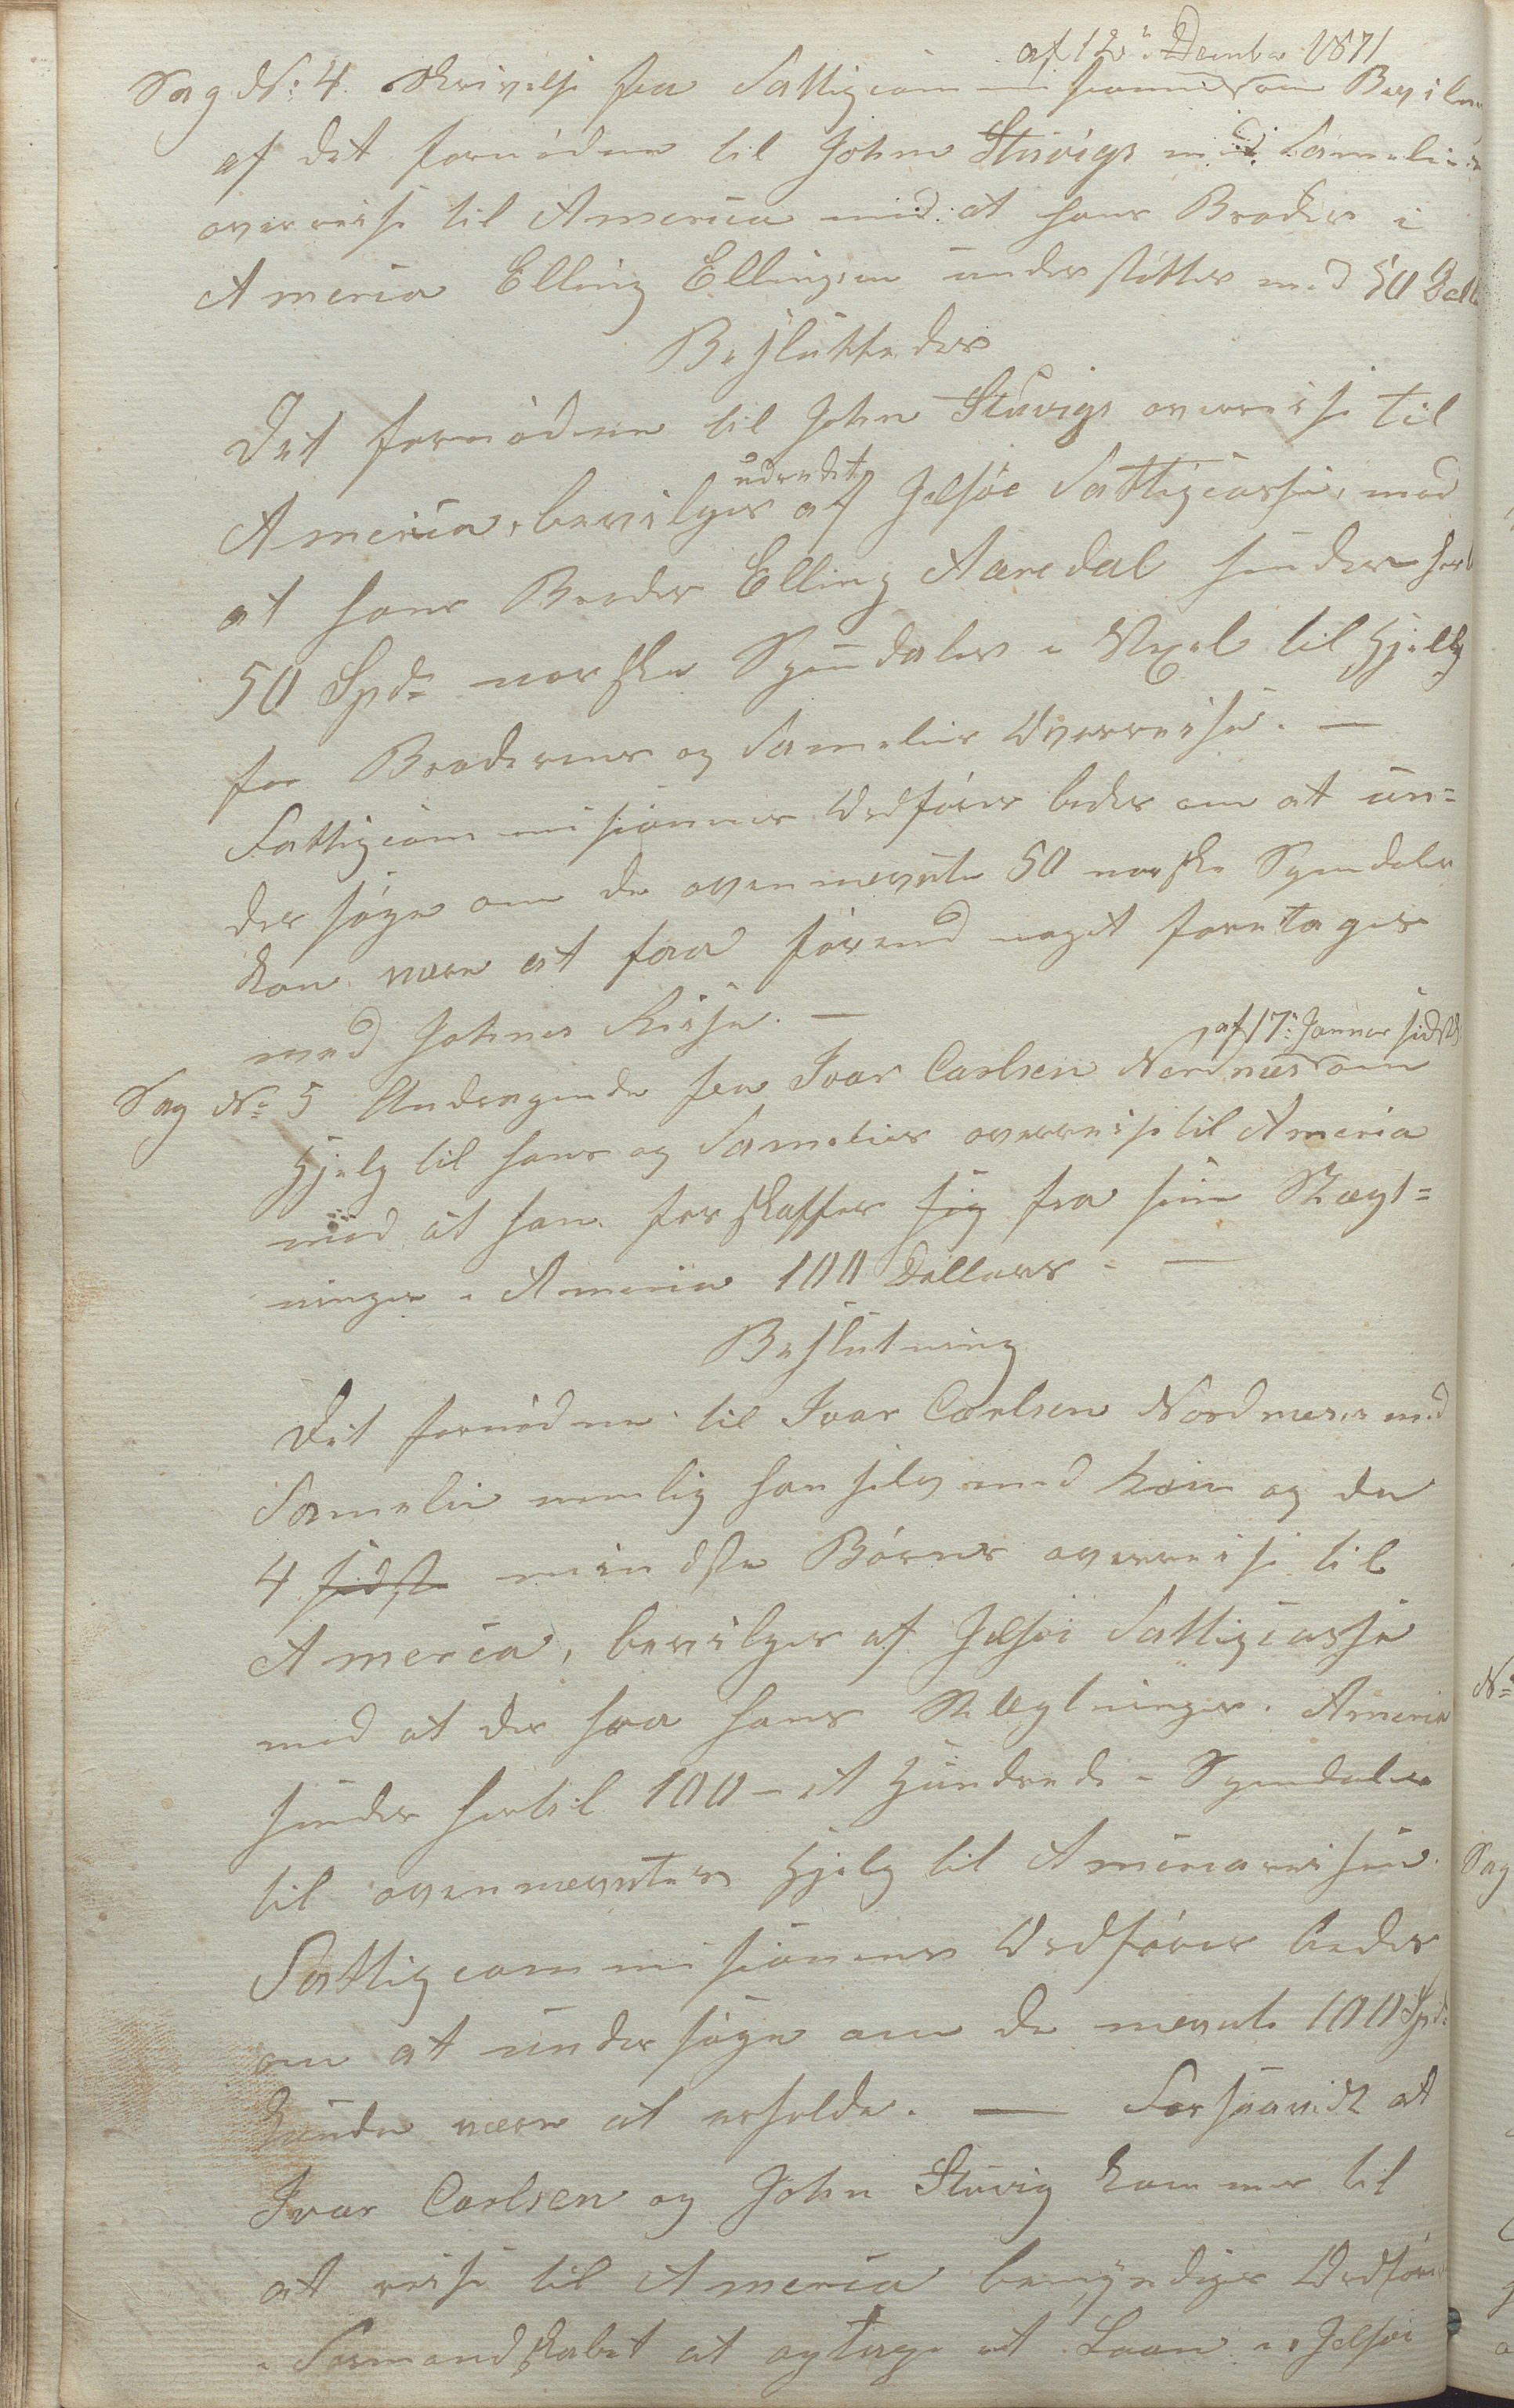 af 12te Decmber 1871
Sag No: 4. Skrivelse fra Fattigcommissionen om Bevilg
af det fornödne til John Stuvigs med Famelies
overreise til America mod at hans Broder i
America Elling Ellingsen understötter med 50 Dall
Besluttedes
Det fornödne til John Stuvigs overreise til
udredet
America, bevilges af Jelsöe Fattigcasse, mod
at hans Broder Elling Aaredal sender hertil
50 Spd: norske Speciedaler i Vexel til Hjelp
for Broderens og Famelies Overreise. —
Fattigcommissionens Ordförer bedes om at un=
dersöge om de ovennevnte 50 norske Specidaler
kan være at faa förend noget foretages
med Johnes Reise. —
af 17: Januar sidstl
Sag No: 5 Andragende fra Ivar Carlsen Nordnæs om
Hjelp til hans og Famelies overreise til America
mod at han forskaffer sig fra sine Slægt=
ninger i America 100 Dollars. —
Beslutning
Det fornödne til Ivar Carlsen Nordnæs med
Famelie nemlig han selv med Kone og de
4 sidste mindste Börns overreise til
America, bevilges af Jelsöe Fattigcasse
mod at der fra hans Slægtninger i America
sendes hertil 100 – et Hundrede – Specidaler
til ovennevntes Hjelp til Americareisen.
Fattigcommissionens Ordförer bedes
om at undersöge om de nevnte 100 Spd:
kunde være at erholde. — Forsaavidt at
Ivar Carlsen og John Stuvig kommer til
at reise til America bemyndiges Ordförer
i Formandskabet at optage et Laan i Jelsöe
No:
Sag